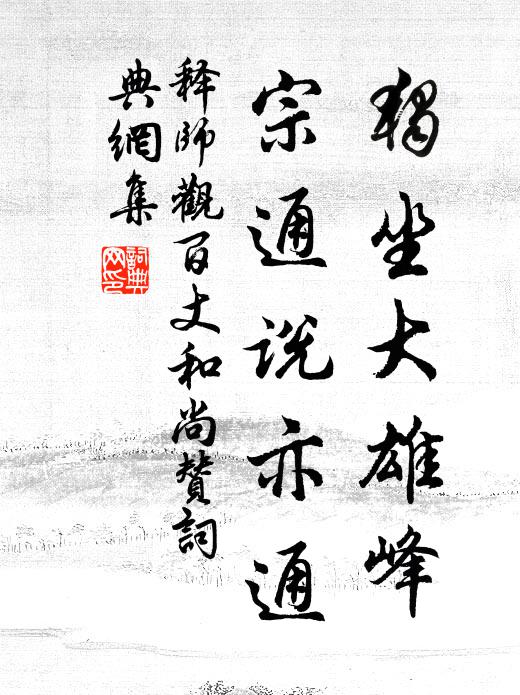 獨坐大雄峰
宗通說亦通
釋師觀百丈和尚贊詞
典網集
詞典網印